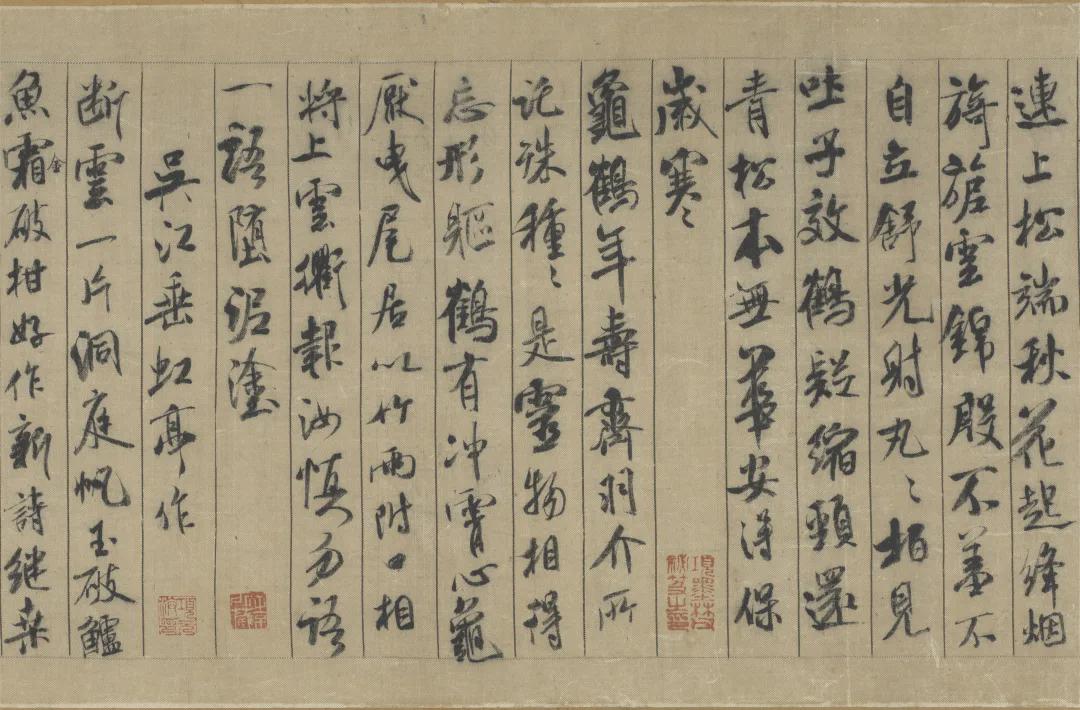 連上松端秋花起絳烟
旖旎雲錦殷不羞不
自立舒光射丸〻柏見
吐子效鶴疑縮頸還
青松本無華安得保
歲寒
龜鶴年壽齊羽介所
託殊種〻是靈物相得
忘形軀鶴有冲霄心龜
厭曳尾居以竹兩附口相
將上雲衢報汝慎勿語
一語墮泥塗
吳江垂虹亭作
断雲一片洞庭帆玉破鱸
魚霜金破柑好作新詩継桒
項墨林父祕笈之印